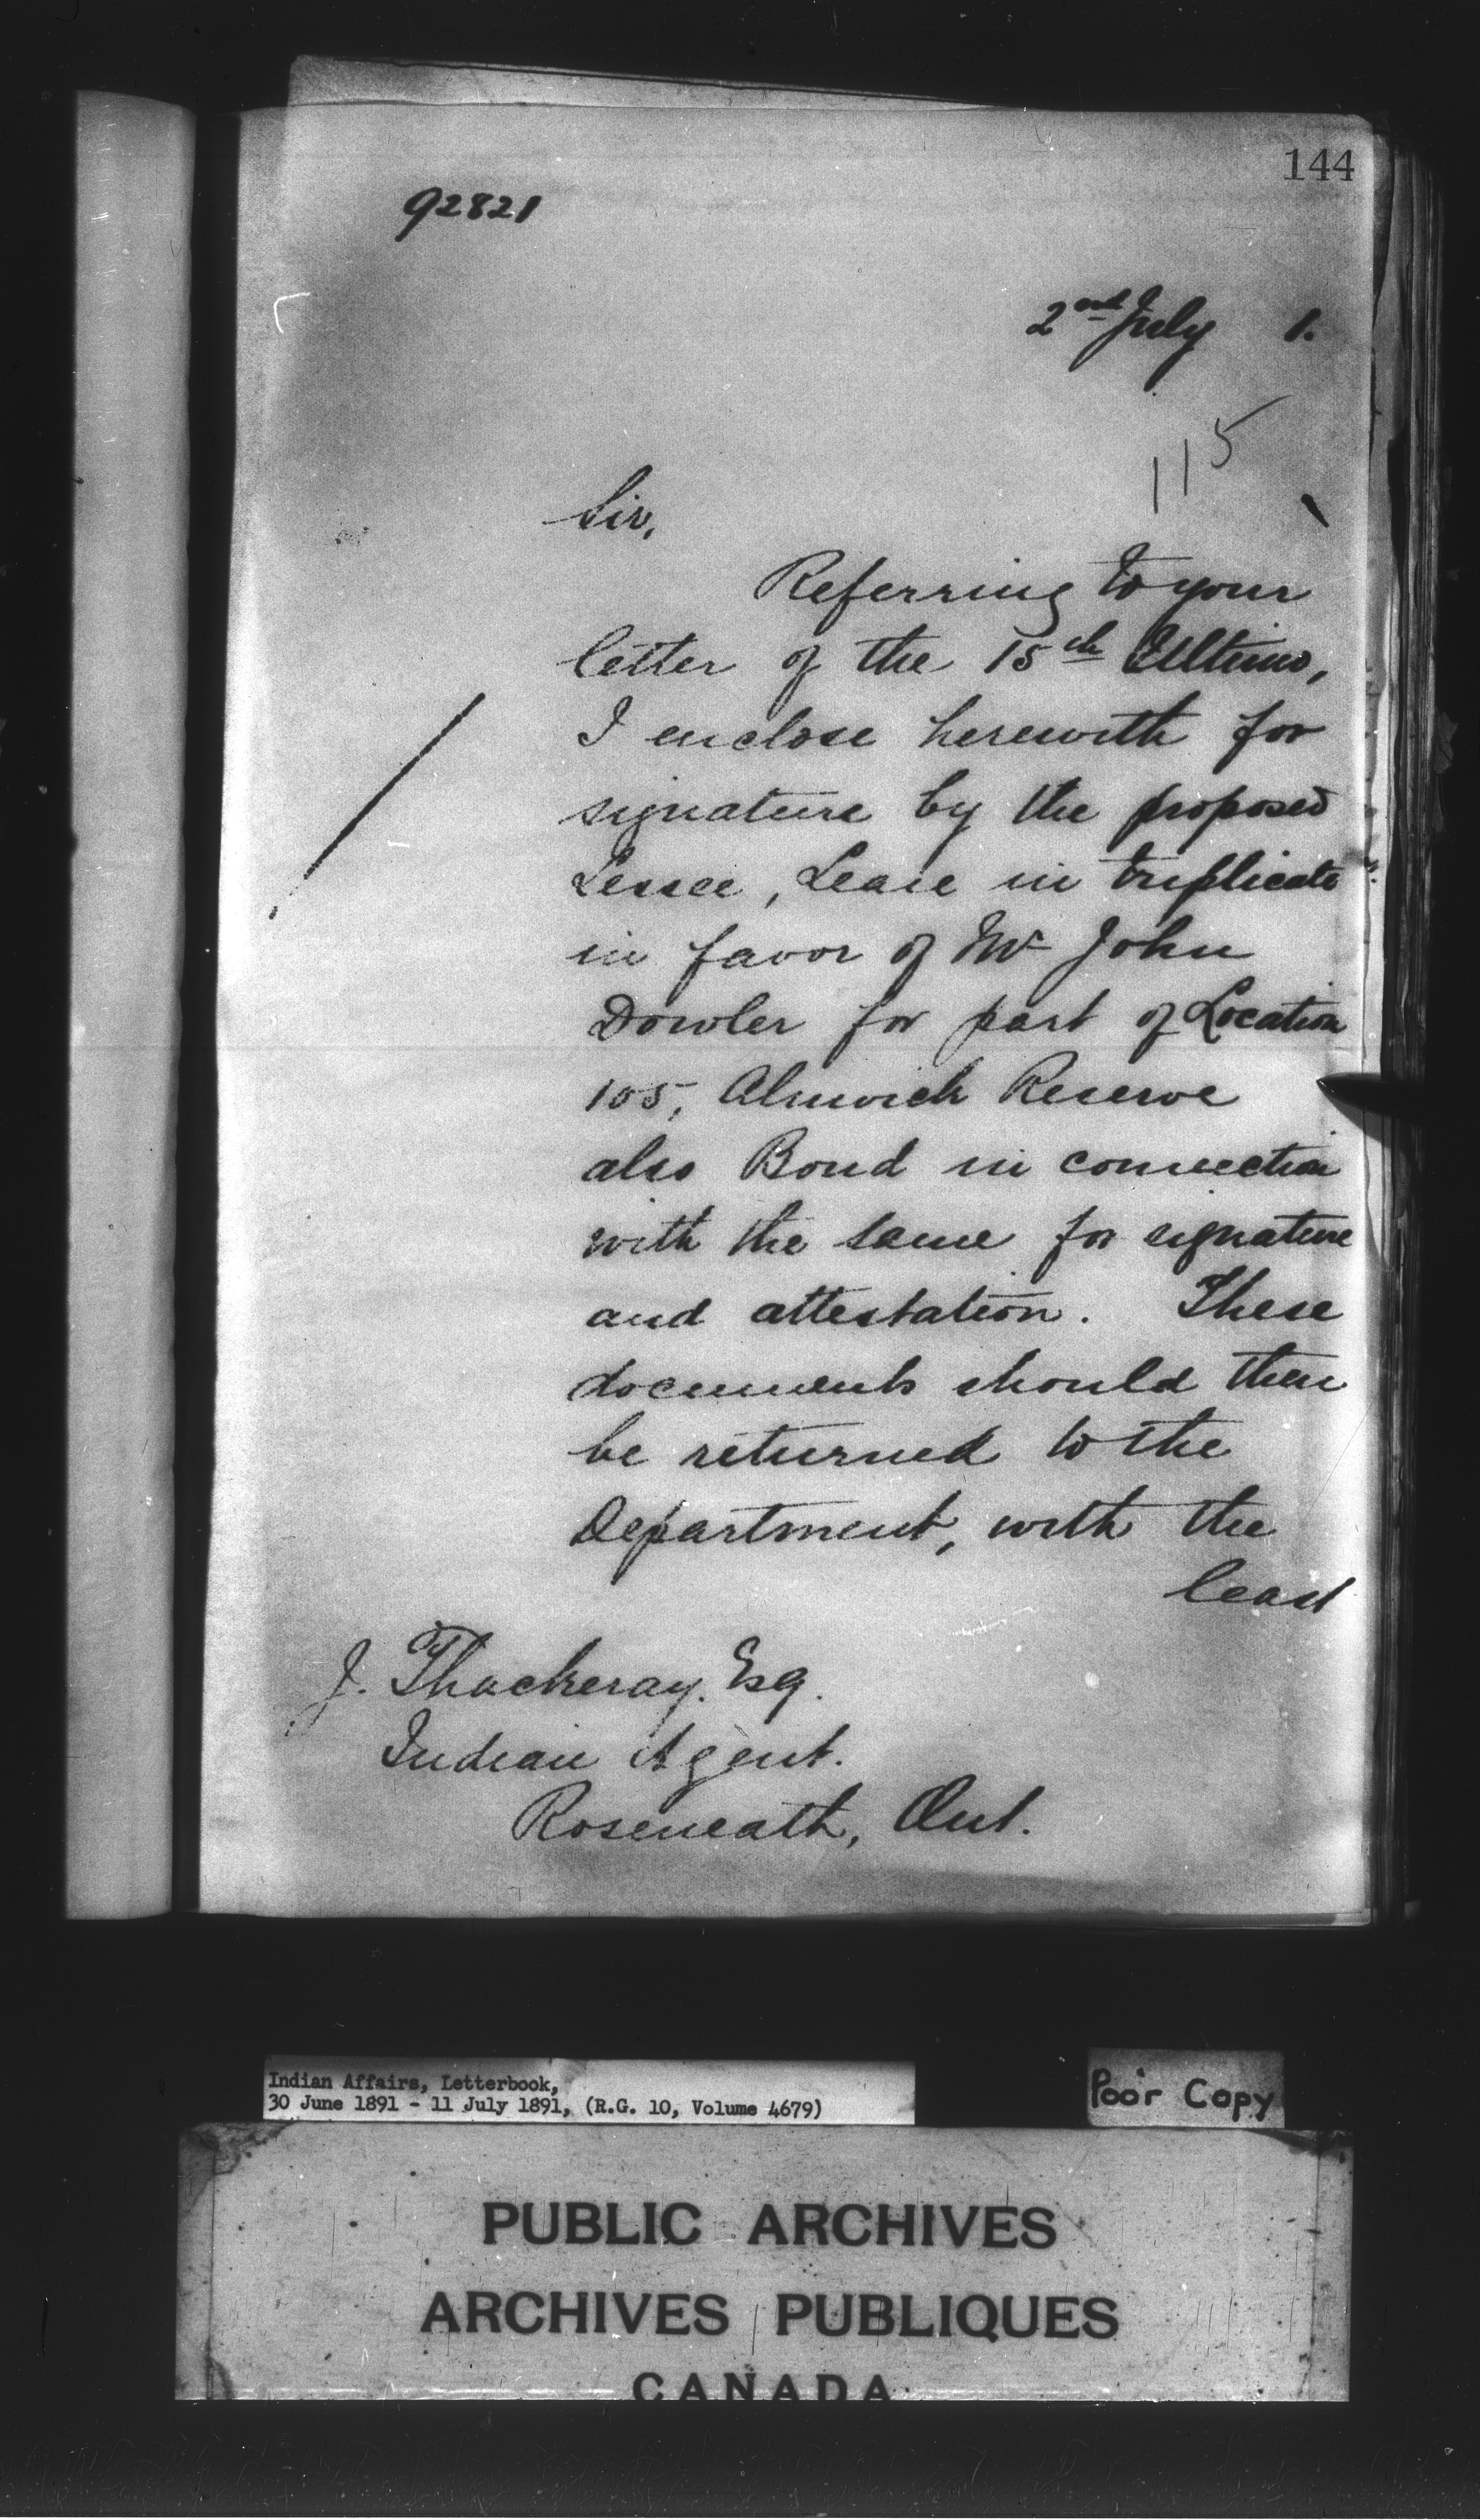 144
92821
2nd July 1.
115
Sir,
Referring to your
letter of the 15th Ultimo,
I enclose herewith for
signature by the proposed
Lessee, Lease in triplicate
in favor of Mr John
Dowler for part of Location
105, Alnwick Reserve
also Bond in connection
with the same for signature
and attestation. These
documents should then
be returned to the
Department, with the
least
J. Thackeray. Esq.
Indian Agent.
Roseneath, Ont.
Indian Affairs, Letterbook,
30 June 1891 - 11 July 1891, (R.G. 10, Volume 4679)
Poor Copy
PUBLIC ARCHIVES
ARCHIVES PUBLIQUES
CANADA